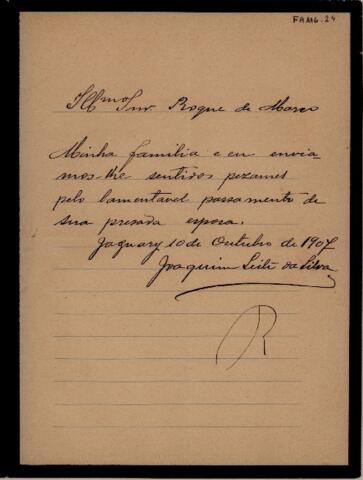 FAMG.24
Illmo Snr. Roque de Marco
Minha familia e eu envia-
mos-lhe sentidos pezames
pelo lamentavel passamento de
sua presada esposa.
Jaguary 10 de Outubro de 1907
Joaquim Leite da Silva
R